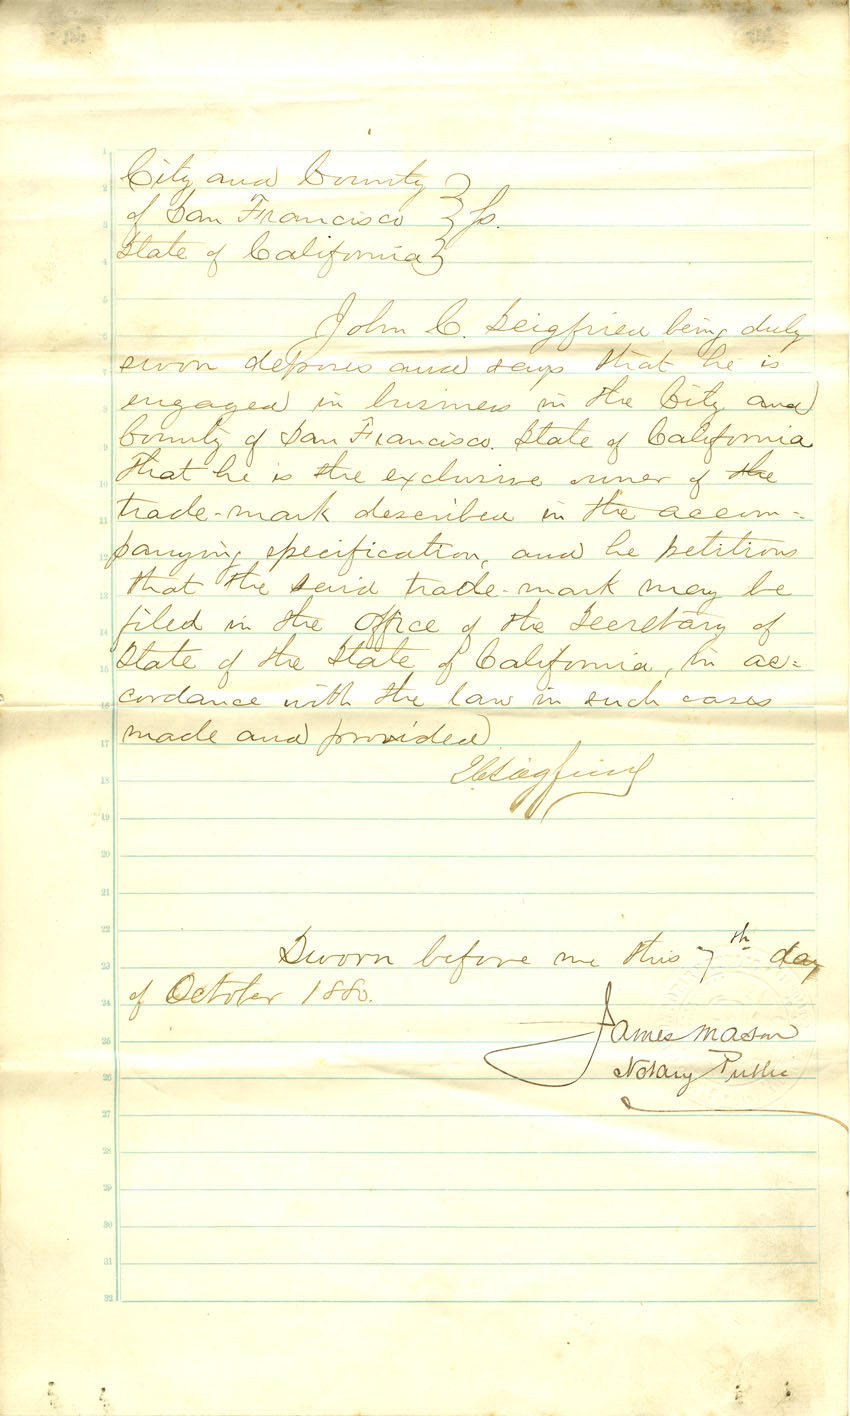 City and County }
of San Francisco } ss.
State of California }
John C. Seigfried being duly
sworn deposes and says that he is
engaged in business in the City and
County of San Francisco. State of California
that he is the exclusive owner of the
trade-mark described in the accom-
panying specification, and he petitions
that the said trade-mark may be
filed in the Office of the Secretary of
State of the State of California, in ac=
cordance with the law in such cases
made and provided
JCSiegfried
Sworn before me this 7th day
of October 1880.
James Mason
Notary Public
1
2
3
4
5
6
7
8
9
10
11
12
13
14
15
16
17
18
19
20
21
22
23
24
25
26
27
28
29
30
31
32